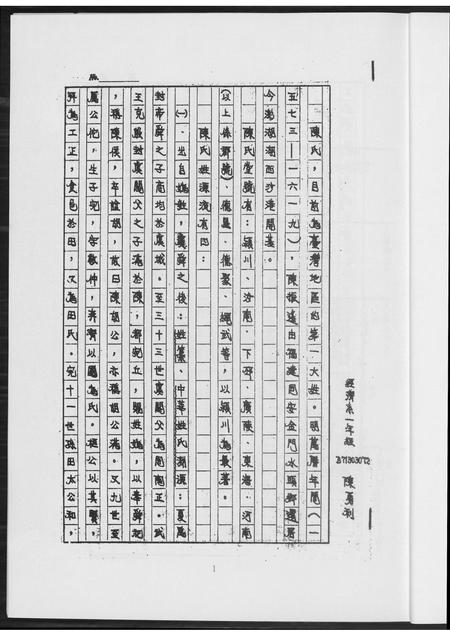 經濟系一年級
B71303072 陳勇利
陳氏,目前為臺灣地區的第一大姓。明萬曆年間(一
五七三—一六一九),陳振遙由福建同安金門水頭鄉遷居
今澎湖湖西沙港開基。
陳氏堂號有:潁川、汝南、下邳、廣陵、東海、河南
(以上係郡號)、德星、德聚、繩武等,以潁川為最著。
陳氏姓源流有四:
㈠、出自媯姓,虞舜之後:姓纂、中華姓氏淵源:夏禹
封帝舜之子商均於虞城。至三十三世虞閼父為周陶正。武
王克殷封虞閼父之子滿於陳,都宛丘,賜姓媯,以奉舜祀
,稱陳侯,卒諡胡,故曰陳胡公,亦稱胡公滿。又九世至
厲公佗,生子完,字敬仲,奔齊以國為氏。桓公以其賢,
升為工正,食邑於田,又為田氏。完十一世孫田太公和,
1